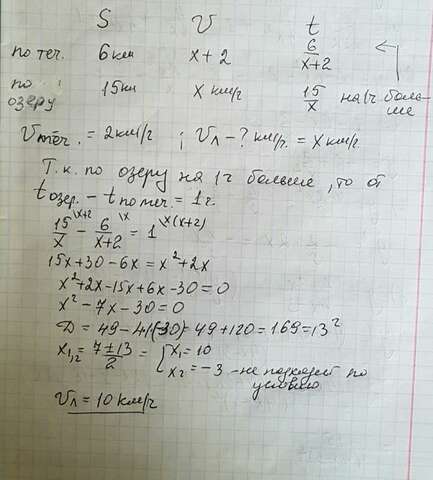 S V t
по теч. 6км x+2 6/x+2
по озеру 15км x км/ч 15/x на 1ч больше
Vтеч. = 2км/ч ; Vл - ? км/ч. = x км/ч
Т.к. по озеру на 1ч больше, то от
t озер. - t по теч. = 1ч.
15/x \x+2 - 6/x+2 \x = 1 \x(x+2)
15x+30-6x = x²+2x
x²+2x-15x+6x-30=0
x²-7x-30=0
D = 49-4·1(-30) = 49+120=169=13²
x1,2 = 7±13/2 = { x1=10
x2=-3 - не подходит по условию
Vл = 10 км/ч